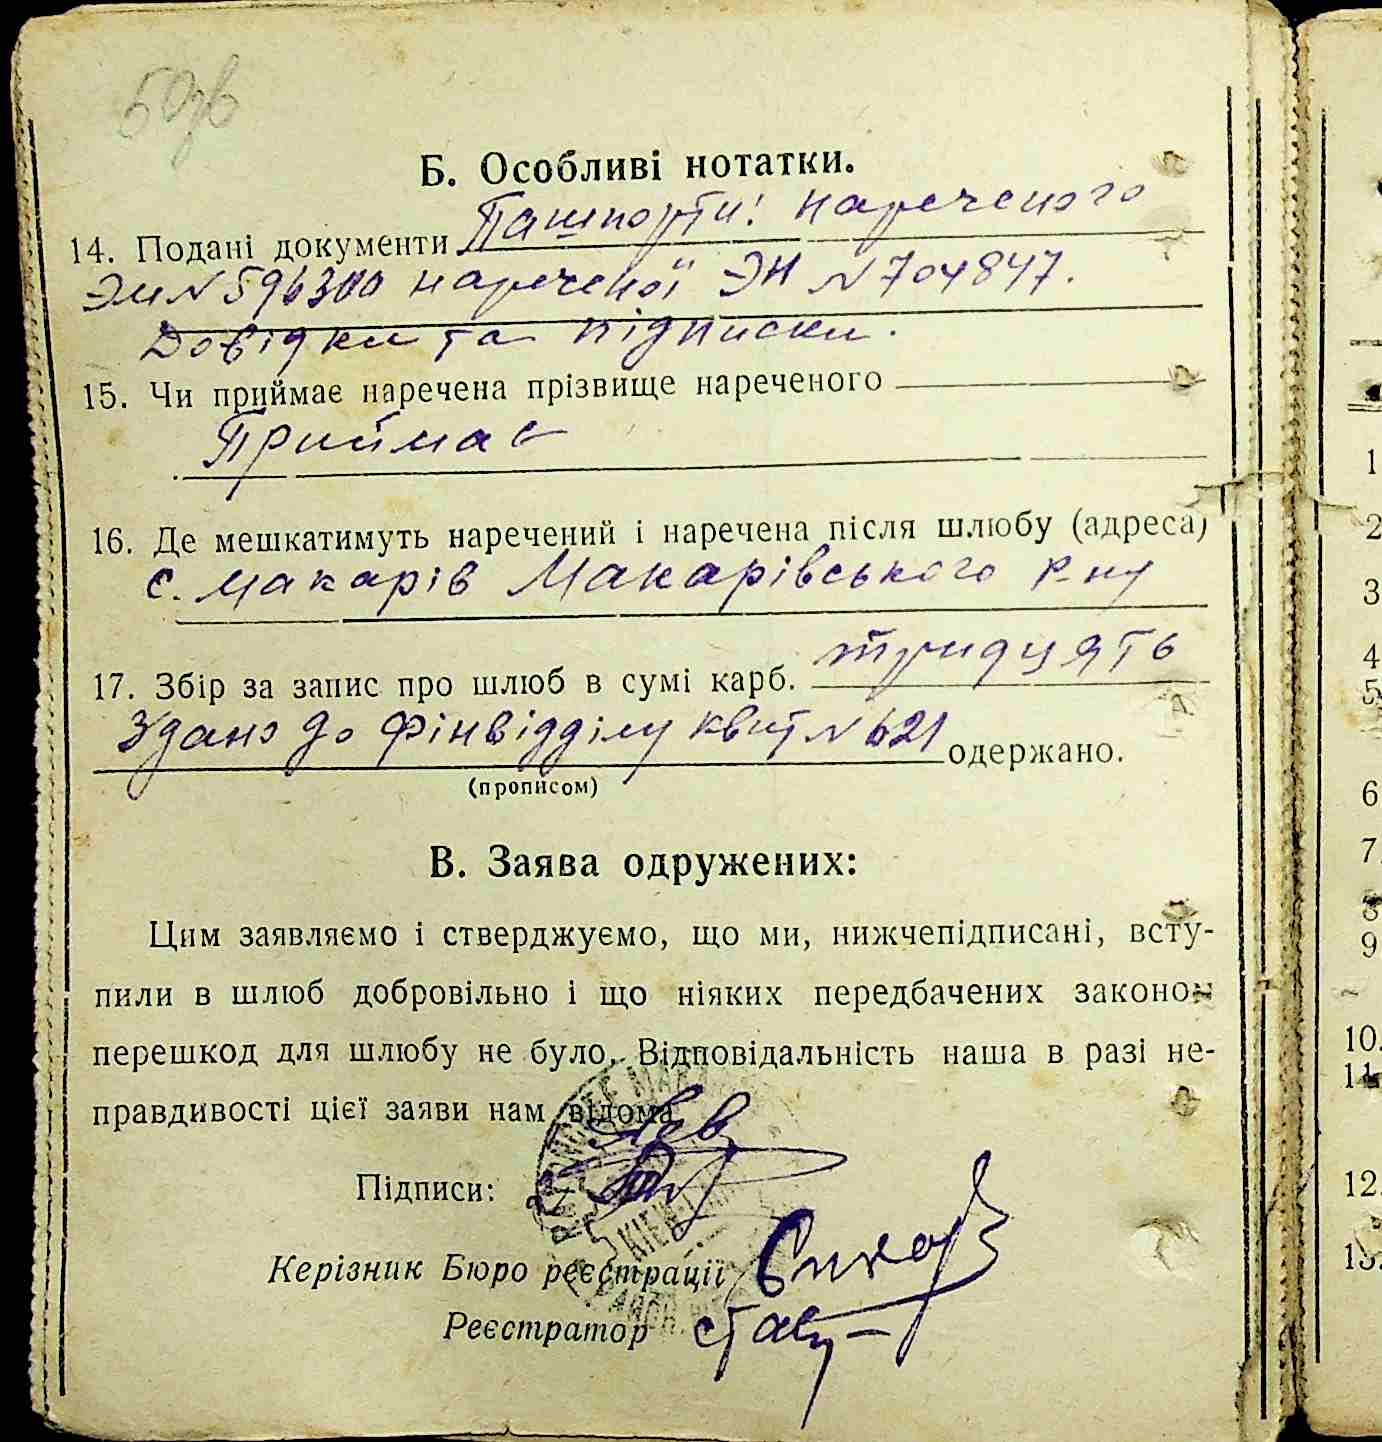 50зв
Б. Особливі нотатки.
14. Подані документи Пашпорти: нареченого
ЭМ № 596300 нареченої ЭН № 704847.
Довідки та підписки.
15. Чи приймає наречена прізвище нареченого
Приймає
16. Де мешкатимуть наречений і наречена після шлюбу (адреса)
с. Макарів Макарівського р-ну
17. Збір за запис про шлюб в сумі карб. тридцять
Здано до Фінвідділу квит № 621 одержано.
(прописом)
В. Заява одружених:
Цим заявляємо і стверджуємо, що ми, нижчепідписані, всту-
пили в шлюб добровільно і що ніяких передбачених законом
перешкод для шлюбу не було. Відповідальність наша в разі не-
правдивості цієї заяви нам відома
Підписи:
Керівник Бюро реєстрації
Реєстратор
1
2
3
4
5
6
7.
8
9
10.
11
12.
13.